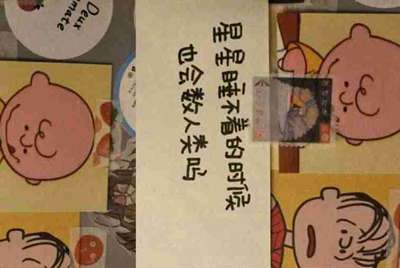 星星睡不着的时候
也会数人类吗
Deux
mate